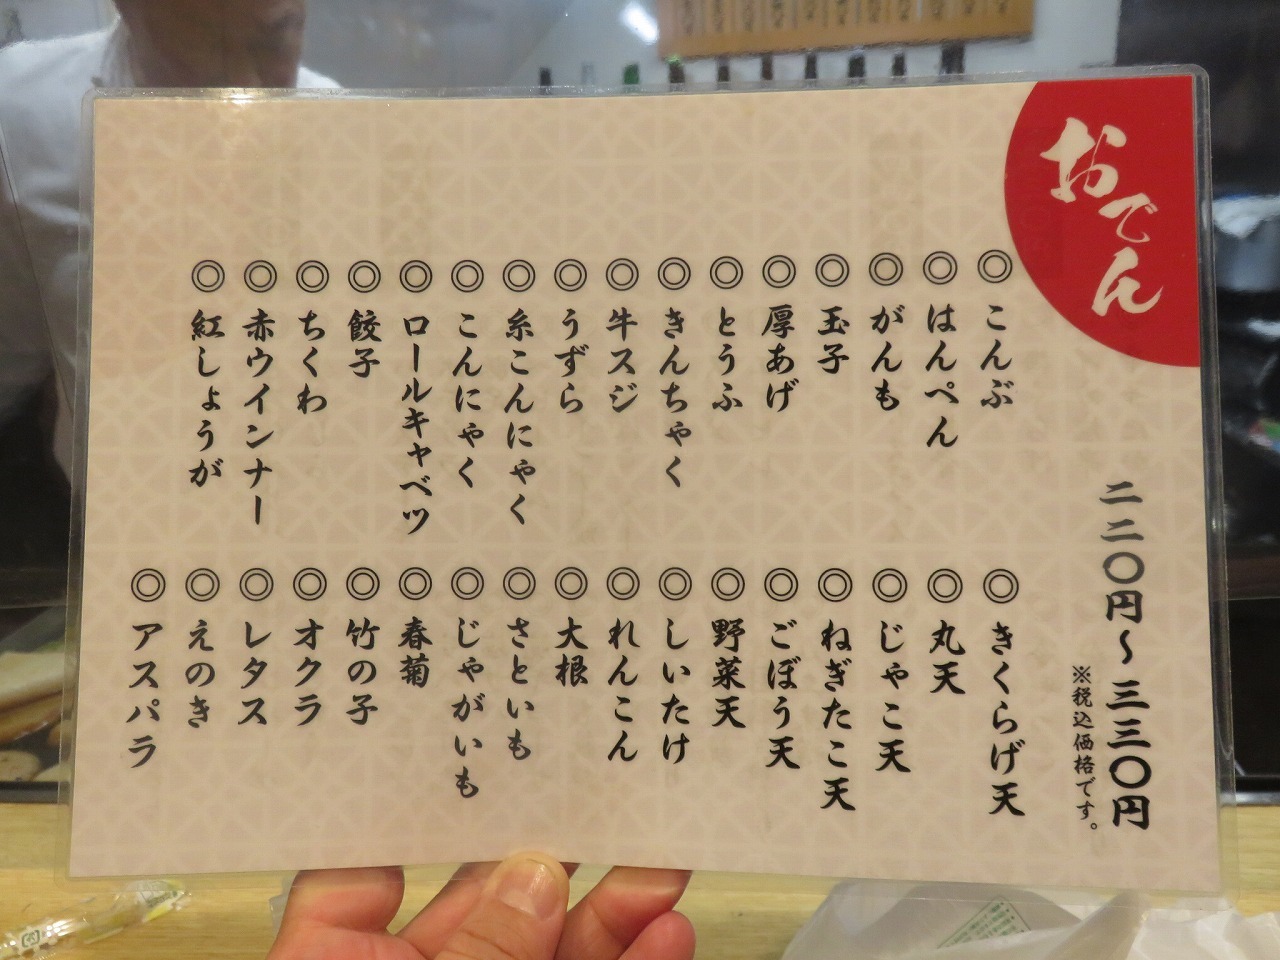 おでん
二二〇円〜三三〇円
※税込価格です。
◎こんぶ
◎はんぺん
◎がんも
◎玉子
◎厚あげ
◎とうふ
◎きんちゃく
◎牛スジ
◎うずら
◎糸こんにゃく
◎こんにゃく
◎ロールキャベツ
◎餃子
◎ちくわ
◎赤ウインナー
◎紅しょうが
◎きくらげ天
◎丸天
◎じゃこ天
◎ねぎたこ天
◎ごぼう天
◎野菜天
◎しいたけ
◎れんこん
◎大根
◎さといも
◎じゃがいも
◎春菊
◎竹の子
◎オクラ
◎レタス
◎えのき
◎アスパラ